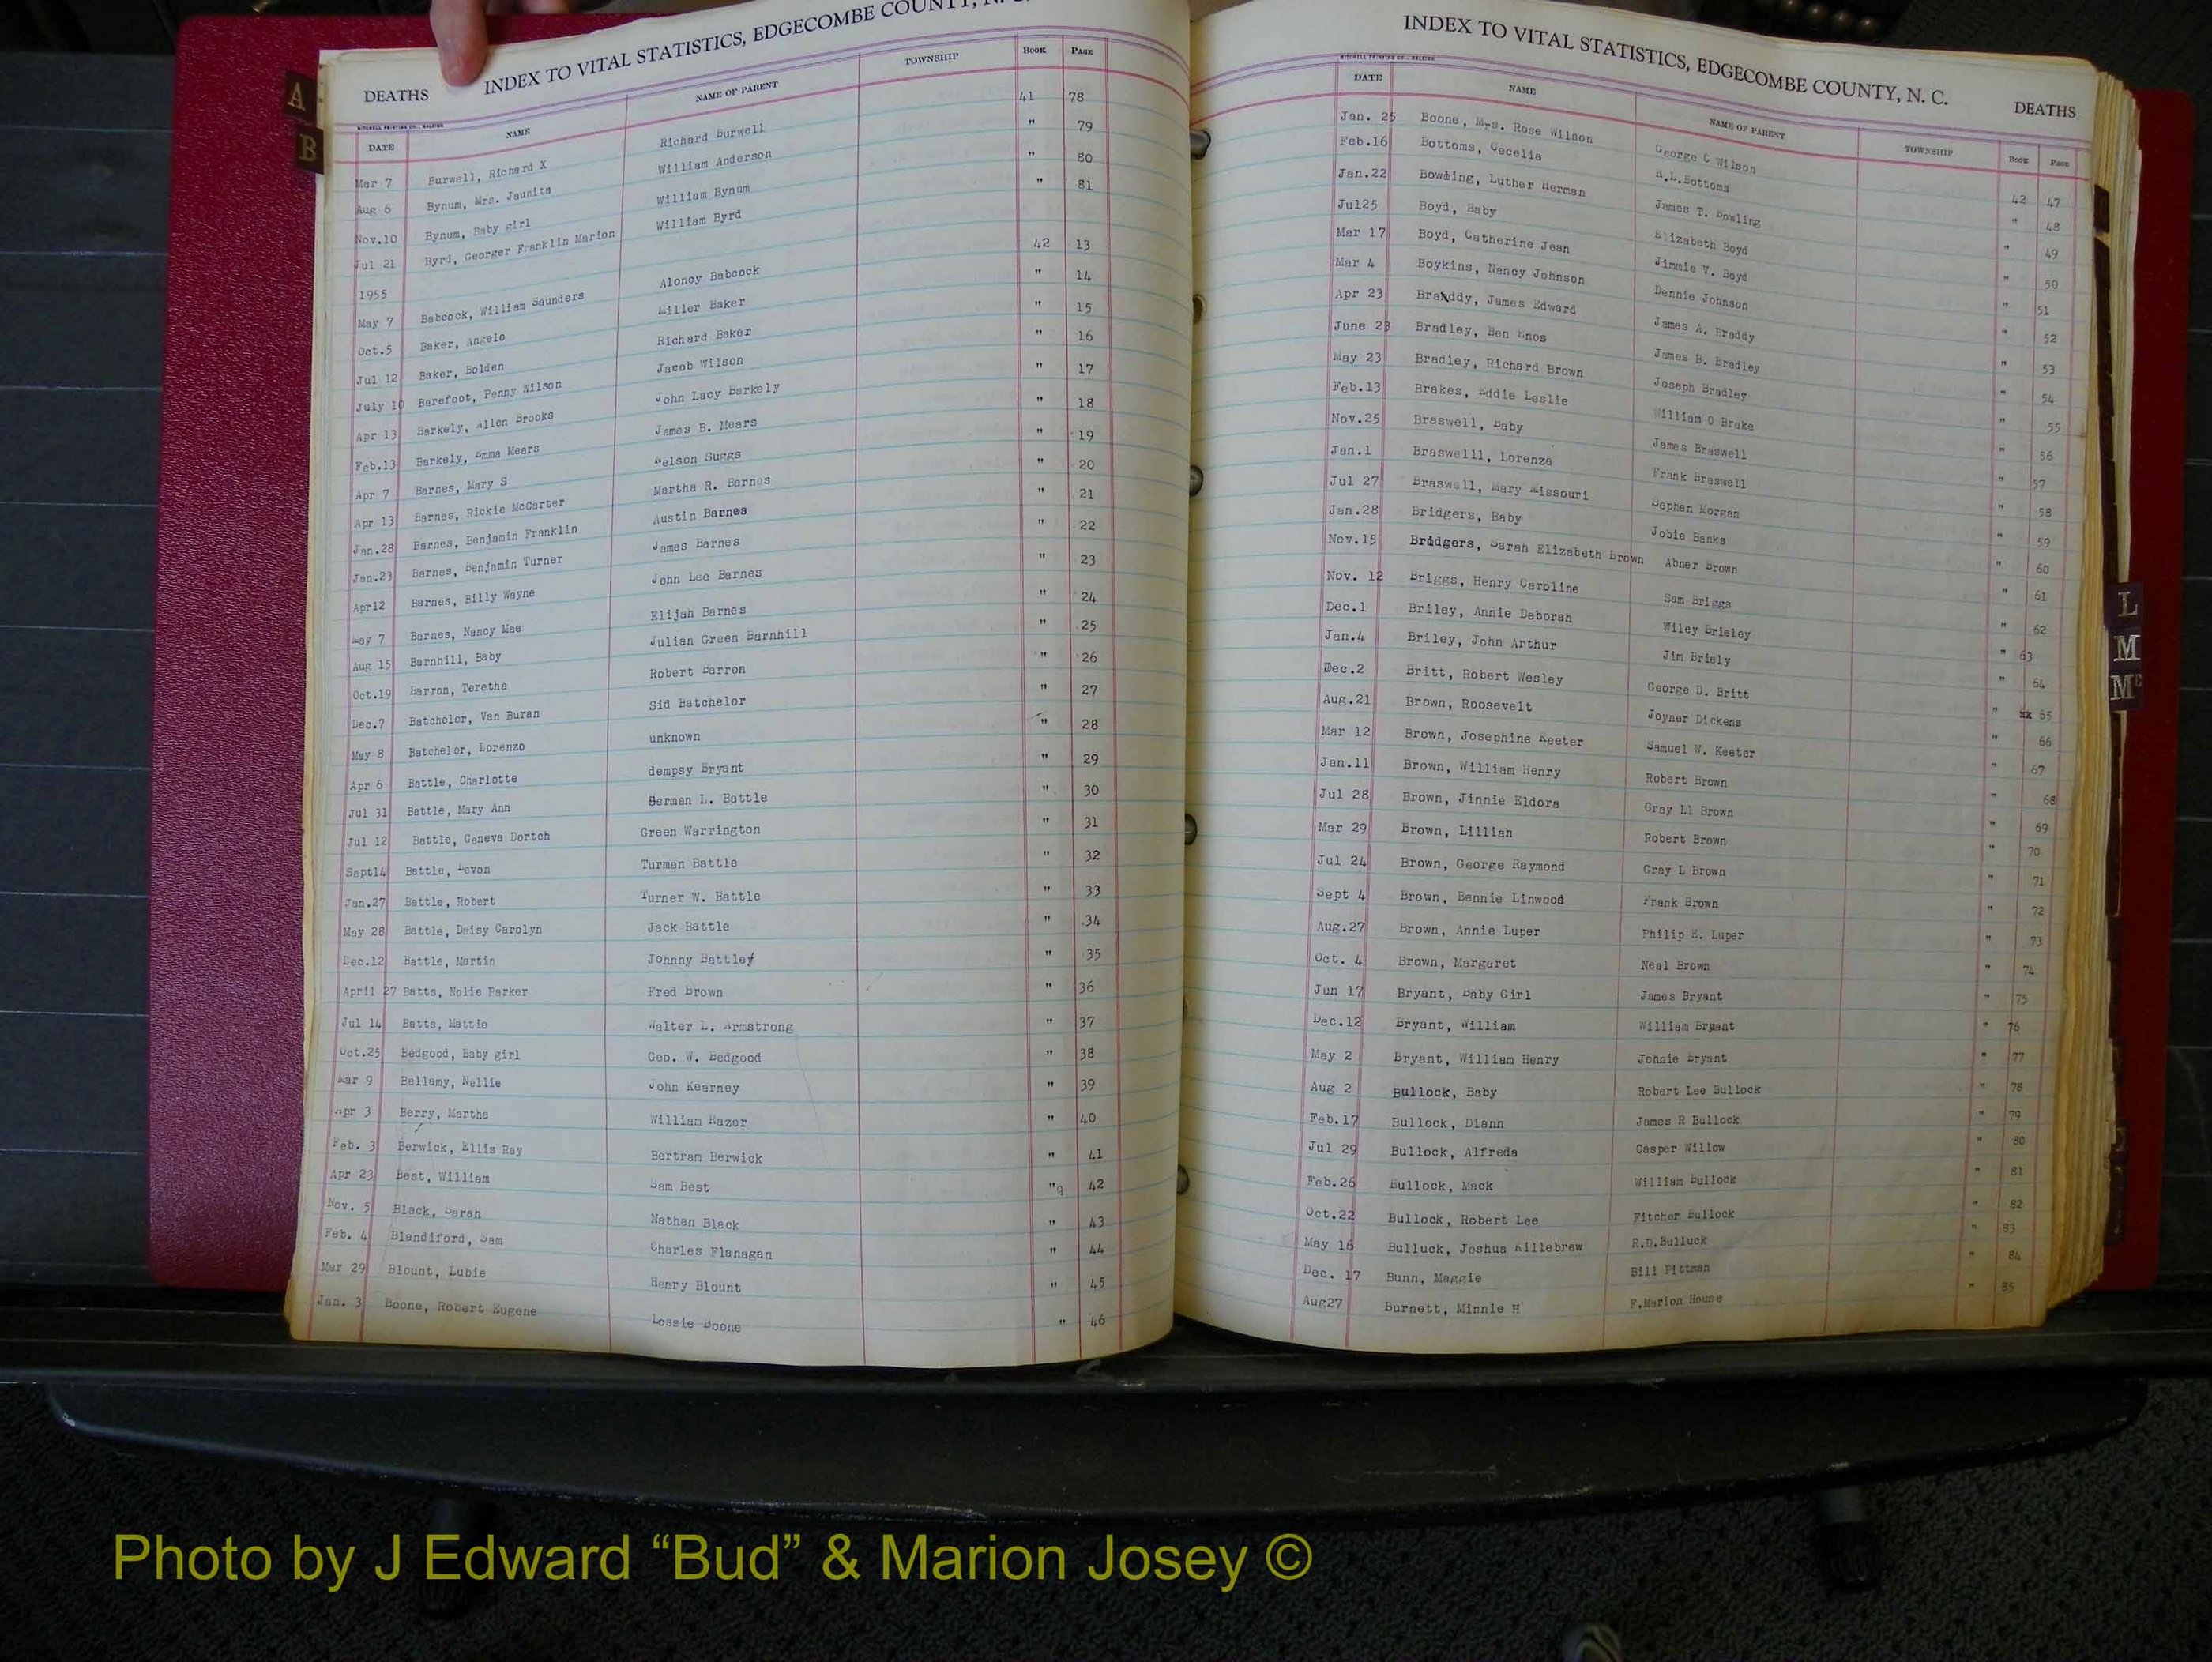 A
B
DEATHS INDEX TO VITAL STATISTICS, EDGECOMBE COUNTY, N. C.
MITCHELL PRINTING CO., RALEIGH
DATE NAME NAME OF PARENT TOWNSHIP BOOK PAGE
Mar 7 Burwell, Richard X Richard Burwell 41 78
Aug 6 Bynum, Mrs. Jaunita William Anderson " 79
Nov.10 Bynum, Baby girl William Bynum " 80
Jul 21 Byrd, Georger Franklin Marion William Byrd " 81
1955
May 7 Babcock, William Saunders Aloncy Babcock 42 13
Oct.5 Baker, Angelo Miller Baker " 14
Jul 12 Baker, Bolden Richard Baker " 15
July 10 Barefoot, Penny Wilson Jacob Wilson " 16
Apr 13 Barkely, Allen Brooks John Lacy Barkely " 17
Feb.13 Barkely, Emma Mears James B. Mears " 18
Apr 7 Barnes, Mary S Nelson Suggs " 19
Apr 13 Barnes, Rickie McCarter Martha R. Barnes " 20
Jan.28 Barnes, Benjamin Franklin Austin Barnes " 21
Jan.23 Barnes, Benjamin Turner James Barnes " 22
Apr12 Barnes, Billy Wayne John Lee Barnes " 23
May 7 Barnes, Nancy Mae Elijah Barnes " 24
Aug 15 Barnhill, Baby Julian Green Barnhill " 25
Oct.19 Barron, Teretha Robert Barron " 26
Dec.7 Batchelor, Van Buran Sid Batchelor " 27
May 8 Batchelor, Lorenzo unknown " 28
Apr 6 Battle, Charlotte dempsy Bryant " 29
Jul 31 Battle, Mary Ann Herman L. Battle " 30
Jul 12 Battle, Geneva Dortch Green Warrington " 31
Sept14 Battle, Levon Turman Battle " 32
Jan.27 Battle, Robert Turner W. Battle " 33
May 28 Battle, Daisy Carolyn Jack Battle " 34
Dec.12 Battle, Martin Johnny Battley " 35
April 27 Batts, Nolie Parker Fred Brown " 36
Jul 14 Batts, Mattie Walter L. Armstrong " 37
Oct.25 Bedgood, Baby girl Geo. W. Bedgood " 38
Mar 9 Bellamy, Nellie John Kearney " 39
Apr 3 Berry, Martha William Razor " 40
Feb. 3 Berwick, Ellis Ray Bertram Berwick " 41
Apr 23 Best, William Sam Best "q 42
Nov. 5 Black, Sarah Nathan Black " 43
Feb. 4 Blandiford, Sam Charles Flanagan " 44
Mar 29 Blount, Lubie Henry Blount " 45
Jan. 3 Boone, Robert Eugene Lossie Boone " 46
INDEX TO VITAL STATISTICS, EDGECOMBE COUNTY, N. C. DEATHS
MITCHELL PRINTING CO., RALEIGH
DATE NAME NAME OF PARENT TOWNSHIP BOOK PAGE
Jan. 25 Boone, Mrs. Rose Wilson George C Wilson 42 47
Feb.16 Bottoms, Cecelia H.L.Bottoms " 48
Jan.22 Bowling, Luther Herman James T. Bowling " 49
Jul25 Boyd, Baby Elizabeth Boyd " 50
Mar 17 Boyd, Catherine Jean Jimmie V. Boyd " 51
Mar 4 Boykins, Nancy Johnson Dennie Johnson " 52
Apr 23 Braddy, James Edward James A. Braddy " 53
June 23 Bradley, Ben Enos James B. Bradley " 54
May 23 Bradley, Richard Brown Joseph Bradley " 55
Feb.13 Brakes, Eddie Leslie William O Brake " 56
Nov.25 Braswell, Baby James Braswell " 57
Jan.1 Braswelll, Lorenza Frank Braswell " 58
Jul 27 Braswell, Mary Missouri Sephen Morgan " 59
Jan.28 Bridgers, Baby Jobie Banks " 60
Nov.15 Bridgers, Sarah Elizabeth Brown Abner Brown " 61
Nov. 12 Briggs, Henry Caroline Sam Briggs " 62
Dec.1 Briley, Annie Deborah Wiley Brieley " 63
Jan.4 Briley, John Arthur Jim Briely " 64
Dec.2 Britt, Robert Wesley George D. Britt " xx 65
Aug.21 Brown, Roosevelt Joyner Dickens " 66
Mar 12 Brown, Josephine Keeter Samuel W. Keeter " 67
Jan.11 Brown, William Henry Robert Brown " 68
Jul 28 Brown, Jinnie Eldora Gray Ll Brown " 69
Mar 29 Brown, Lillian Robert Brown " 70
Jul 24 Brown, George Raymond Gray L Brown " 71
Sept 4 Brown, Bennie Linwood Frank Brown " 72
Aug.27 Brown, Annie Luper Philip E. Luper " 73
Oct. 4 Brown, Margaret Neal Brown " 74
Jun 17 Bryant, Baby Girl James Bryant " 75
Dec.12 Bryant, William William Bryant " 76
May 2 Bryant, William Henry Johnie Bryant " 77
Aug 2 Bullock, Baby Robert Lee Bullock " 78
Feb.17 Bullock, Diann James R Bullock " 79
Jul 29 Bullock, Alfreda Casper Willow " 80
Feb.26 Bullock, Mack William Bullock " 81
Oct.22 Bullock, Robert Lee Fitcher Bullock " 82
May 16 Bulluck, Joshua Killebrew R.D.Bulluck " 83
Dec. 17 Bunn, Maggie Bill Pittman " 84
Aug27 Burnett, Minnie H F.Marion House " 85
L
M
Mc
Photo by J Edward “Bud” & Marion Josey ©